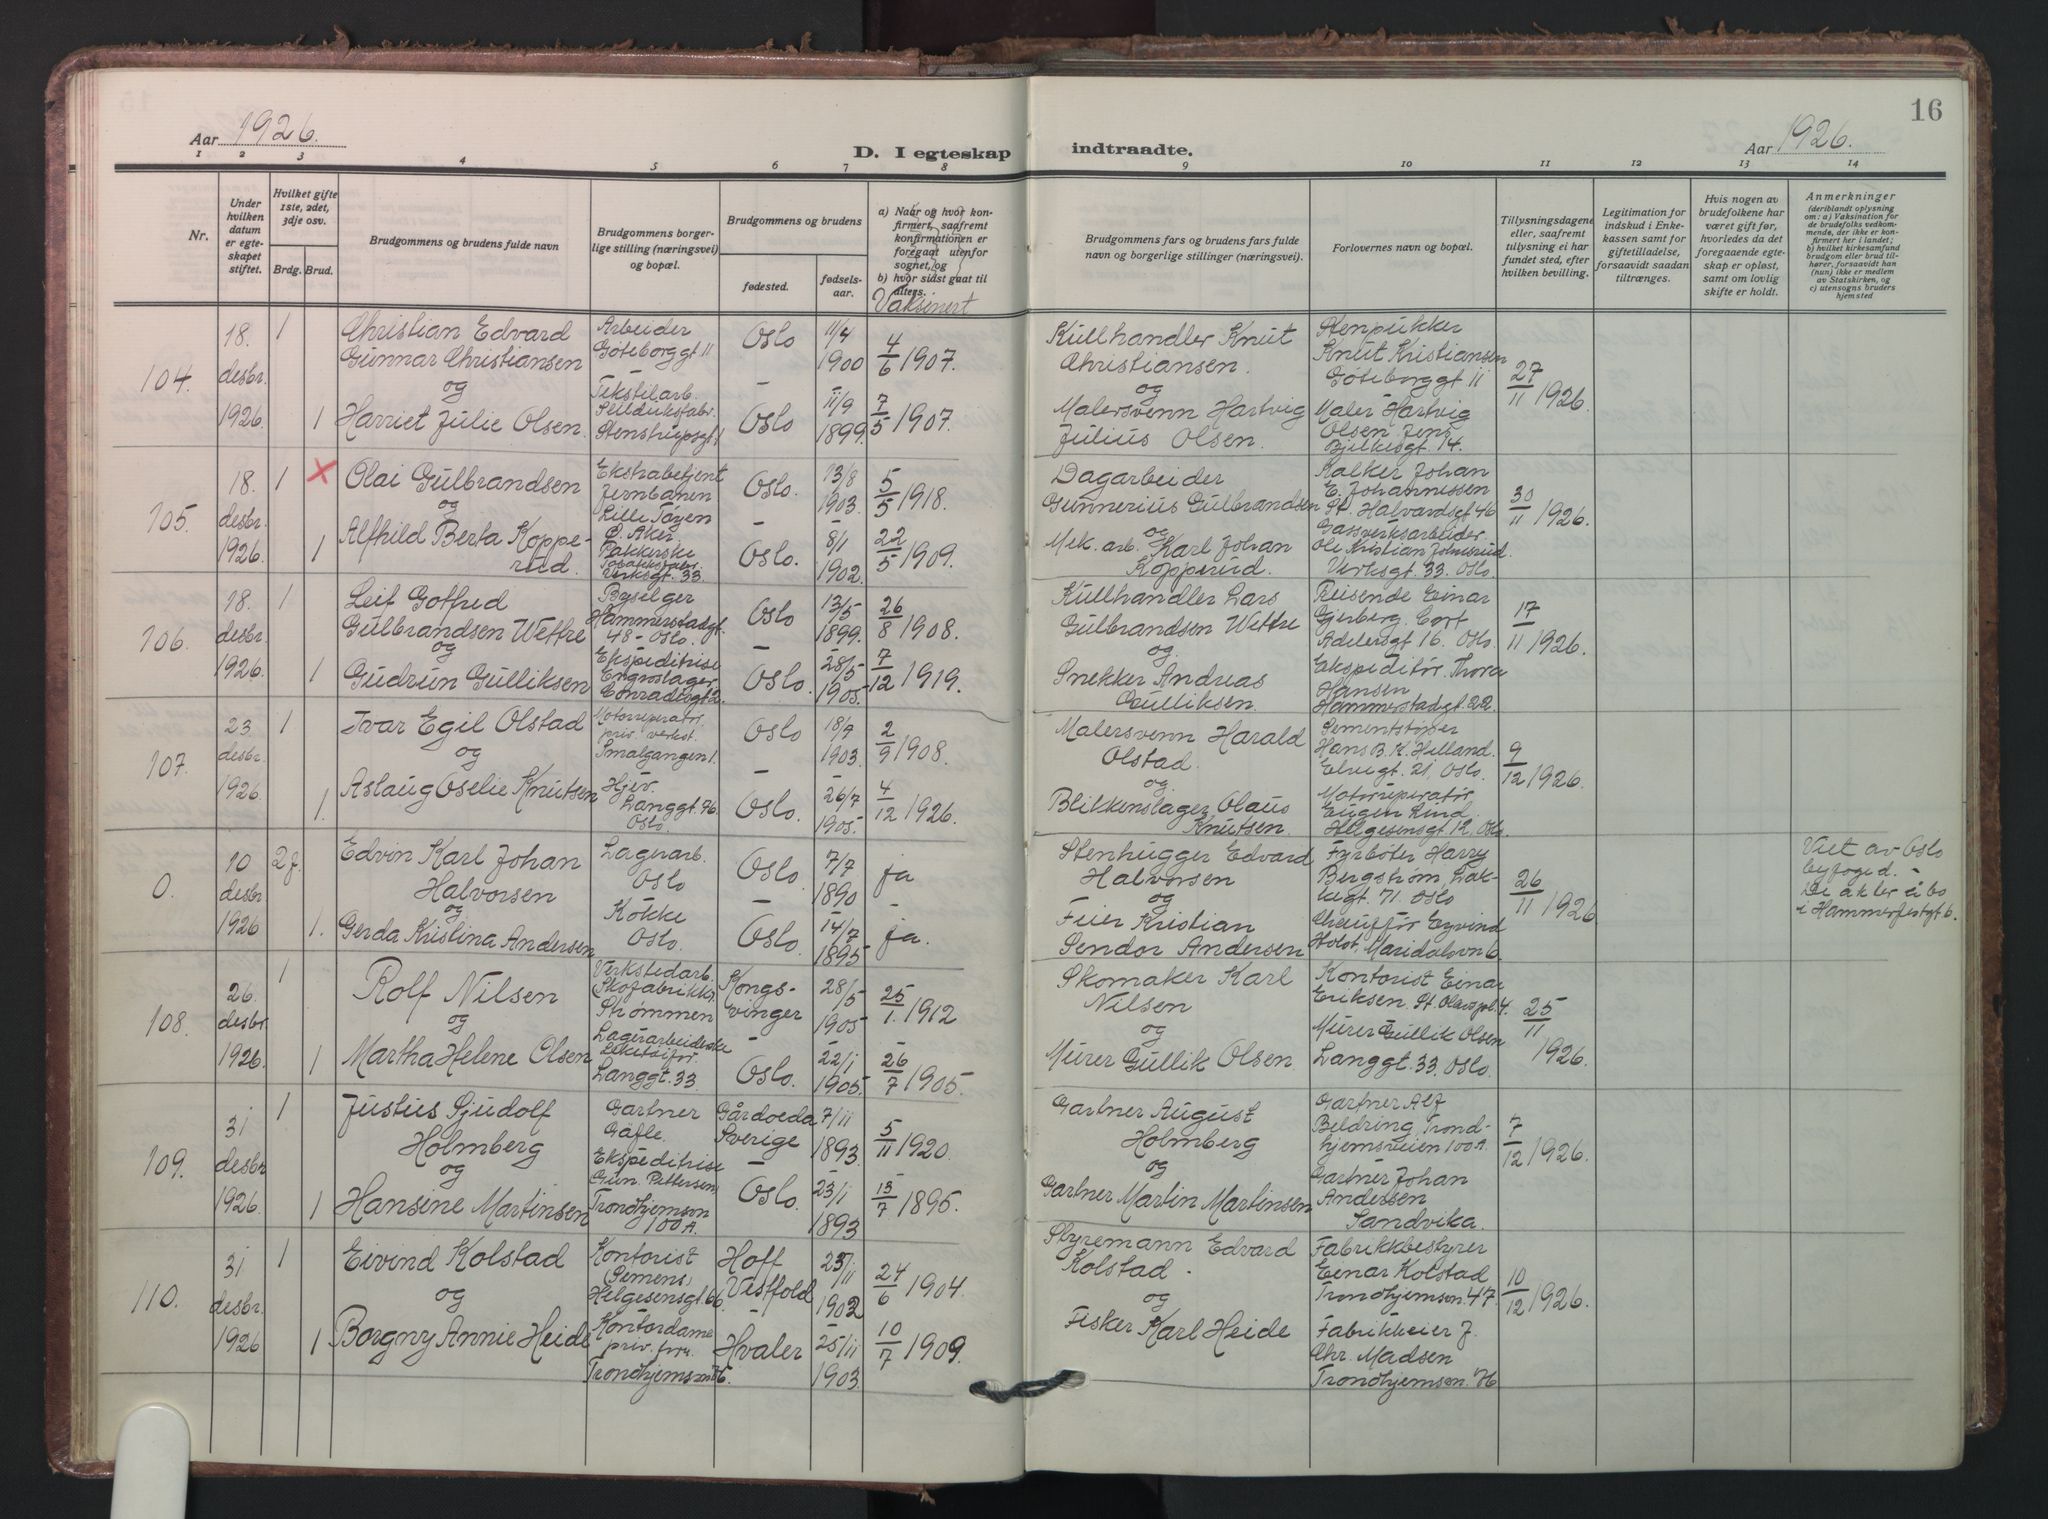 16
Aar 1926.
D. I egteskap indtraadte.
Aar 1926.
1 2 3 4 5 6 7 8 9 10 11 12 13 14
Nr.
Under hvilken datum er egteskapet stiftet.
Hvilket gifte 1ste, 2det, 3dje osv.
Brdg. Brud.
Brudgommens og brudens fulde navn
Brudgommens borgerlige stilling (næringsvei) og bopæl.
Brudgommens og brudens
fødested. fødselsaar.
a) Naar og hvor konfirmert, saafremt konfirmationen er foregaat utenfor sognet, og
b) hvor sidst gaat til alters.
Vaksinert
Brudgommens fars og brudens fars fulde navn og borgerlige stillinger (næringsvei).
Forlovernes navn og bopæl.
Tillysningsdagene eller, saafremt tillysning ei har fundet sted, efter hvilken bevilling.
Legitimation for indskud i Enkekassen samt for giftetilladelse, forsaavidt saadan tiltrænges.
Hvis nogen av brudefolkene har været gift før, hvorledes da det foregaaende egteskap er opløst, samt om lovlig skifte er holdt.
Anmerkninger
(deriblandt oplysning om: a) Vaksination for de brudefolks vedkommende, der ikke er konfirmert her i landet; b) hvilket kirkesamfund brudgom eller brud tilhører, forsaavidt han (hun) ikke er medlem av Statskirken, og c) utensogns bruders hjemsted
104.
18. desbr. 1926.
1
Christian Edvard
Gunnar Christiansen
og
1 Harriet Julie Olsen.
Arbeider
Göteborggt 11
Tekstilarb.
Seildüksfabr.
Stenstrupsgt 1
Oslo
-
Oslo
11/4 1900
11/9 1899.
4/6 1907.
7/5 1907.
Kullhandler Knut
Christiansen.
og
Malersvenn Hartvig
Julius Olsen.
Stenpukker
Knut Kristiansen
Göteborggt 11
Maler Hartvig
Olsen Jens
Bjelkesgt 14.
27/11 1926.
105.
18. desbr. 1926
1 X
Olai Gulbrandsen
og
1 Alfhild Berta Kopperud.
Ekstrabetjent
Jernbanen
Lille Tøyen
Ø. Aker
Pakkerske
Verksgt. 33.
Oslo.
-
Oslo.
13/8 1903.
8/1 1902.
5/5 1918.
22/5 1909.
Dagarbeider
Gunnerius Gulbrandsen
og
Mek. arb. Karl Johan
Kopperud.
Kalker Johan
E. Johannessen
St. Halvardsgt 46
Gassverksarbeider
Ole Kristian Johnsrud.
Verksgt. 33. Oslo.
30/11 1926.
106.
18. desbr. 1926.
1
Leif Gotfred
Gulbrandsen Wettre
og
1 Gudrun Gulliksen
Byselger
Hammerstadgt.
48 - Oslo.
Ekspeditrise
Engroslager
Conradisgt 2.
Oslo
-
Oslo.
13/5 1899.
28/5 1905.
26/8 1908.
7/12 1919.
Kullhandler Lars
Gulbrandsen Wettre
og.
Snekker Andreas
Gulliksen.
Reisende Einar
Gjerberg. Cort
Adelersgt 16. Oslo.
Ekspeditør. Thora
Hansen
Hammerstadgt. 22.
17/11 1926.
107.
23. desbr. 1926.
1
Ivar Egil Olstad
og
1. Aslaug Oselie Knutsen
Motorreperatør.
priv. verkst.
Smalgangen 1.
Hjev.
Langgt. 46.
Oslo.
Oslo
-
Oslo.
18/9 1903.
26/7 1905.
2/9 1908.
4/12 1926.
Malersvenn Harald
Olstad.
og
Blikkenslager Olaus
Knutsen.
Sementstøper
Hans B. K. Helland.
Elvegt. 21. Oslo.
Motorreperatør
Eugen Lind.
Helgesensgt 12, Oslo.
9/12 1926.
0.
10 desbr 1926
2 f.
Edvin Karl Johan
Halvorsen
og
1. Gerda Kristina Andersen
Lagerarb.
Oslo
Kokke
Oslo.
Oslo.
-
Oslo.
7/7 1890
14/7 1895
ja
-
ja.
Stenhugger Edvard
Halvorsen
og
Feier Kristian
Sendor Andersen
Fyrbøter Harry
Bergstrøm, Lakkegt. 71. Oslo
Chauffør Eyvind
Holst. Maridalsvn 6.
26/11 1926
Viet av Oslo
byfoged. -
De akter å bo
i Hammerfestgt 6.
108.
26. desbr. 1926.
1
Rolf Nilsen
og
1 Martha Helene Olsen
Verkstedarb.
(Skofabrikk)
Strømmen
Lagerarbeiderske
Leketøifor.
Langgt. 33.
Kongsvinger
-
Oslo.
28/5 1905
22/1 1905.
25/1. 1912
26/7 1905.
Skomaker Karl
Nilsen
og
Murer Gullik Olsen.
Kontorist Einar
Eriksen. St Olavspl. 4.
Murer Gullik Olsen
Langgt. 33. Oslo.
25/11 1926.
109.
31 desbr 1926.
1
Justus Sjudolf
Holmberg
og
1 Hansine Martinsen
Gartner
Gäfle.
Ekspeditrise
Gun. Pettersen)
Trondhjemsvn
100 A.
Gårdoeda
Sverige
-
Oslo.
7/11 1893.
23/1 1893
5/11 1920.
13/7 1895.
Gartner August
Holmberg
og
Gartner Martin Martinsen
Gartner Alf
Beldring Trondhjemsveien 100 A.
Gartner Johan
Andersen
Sandvika.
7/12 1926.
110.
31 desbr. 1926
1
Eivind Kolstad
og
1 Borgny Annie Heide
Kontorist
(Semens)
Helgesensgt. 66.
Kontordame
priv. forr.
Trondhjemsvn 76.
Hoff
Vestfold
-
Hvaler
23/11 1902
25/11 1903.
24/6 1904.
10/7 1909.
Styremann Edvard
Kolstad.
og
Fisker Karl Heide
Fabrikkbestyrer
Einar Kolstad
Trondhjemsvn. 47.
Fabrikkeier J.
Chr. Madsen
Trondhjemsvn. 76
10/12 1926.